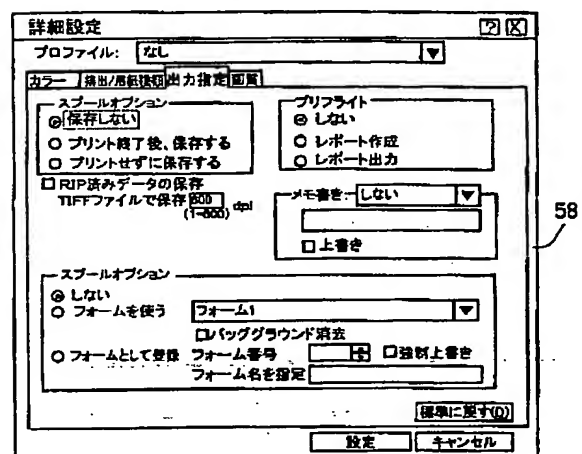 詳細設定
プロファイル: なし
カラー 排出/用紙種類 出力指定 画質
スプールオプション
保存しない
プリント終了後、保存する
プリントせずに保存する
プリフライト
しない
レポート作成
レポート出力
RIP済みデータの保存
TIFFファイルで保存 600 dpi
(1~600)
メモ書き: しない
上書き
58
スプールオプション
しない
フォームを使う フォーム1
バッググラウンド消去
フォームとして登録 フォーム番号 強制上書き
フォーム名を指定
標準に戻す(D)
設定 キャンセル